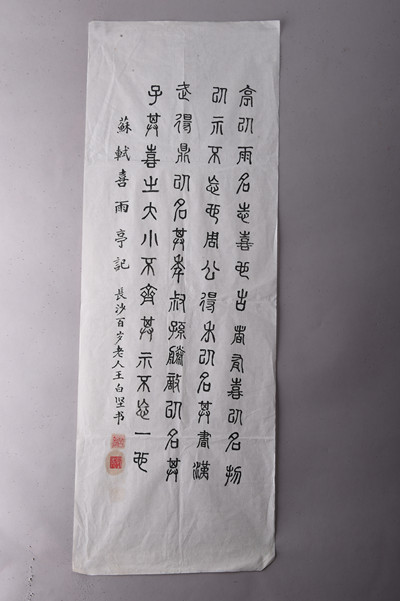 亭以雨名志喜也古者有喜以名物
以示不忘也周公得禾以名其書漢
武得鼎以名其年叔孫勝敵以名其
子其喜之大小不齊其示不忘一也
蘇軾喜雨亭記 長沙百岁老人王白坚书